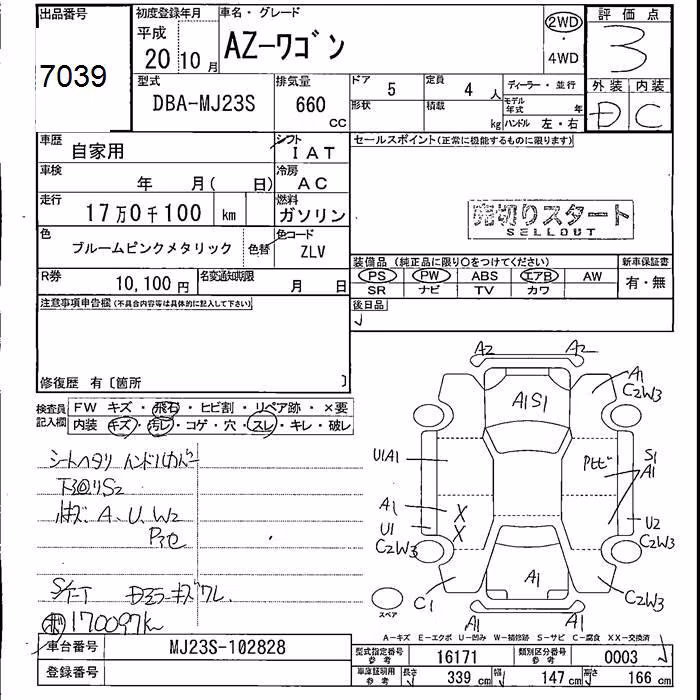 出品番号 初度登録年月 車名・グレード 評価点
7039 平成 20年 10月 AZーワゴン 2WD・4WD 3
型式 DBA-MJ23S 排気量 660 CC
ドア 5 定員 4人 ディーラー・並行 外装 内装
形状 積載 kg モデル年式 年 ハンドル 左・右 D C
車歴 自家用 シフト IAT セールスポイント(正常に機能するものに限ります)
車検 年 月(日) 冷房 AC
走行 17万0千100 km 燃料 ガソリン
売切りスタート
SELLOUT
色 ブルームピンクメタリック 色替 色コード ZLV
装備品 (純正品に限り○をつけてください) 新車保証書
PS PW ABS エアB AW 有・無
SR ナビ TV カワ
R券 10,100円 名変通知期限 月 日
後日品
注意事項申告欄(不具合内容等は具体的に記入して下さい)
修復歴 有〔箇所 〕
検査員記入欄 FW キズ・飛石・ヒビ割・リペア跡・×要
内装 キズ・汚レ・コゲ・穴・スレ・キレ・破レ
シートヘタリ ハンドルカバー
下回りS2
キズ、A、U、W2
S/T-T Dミラーキズワレ
170097k
A2 A2
A1 C2W3
A1S1
U1A1 S1 A1
A1 X
U1 X U2
C2W3 C2W3
A1
C1 C2W3
A1 A1
スペア
A-キズ E-エクボ U-凹み W-補修跡 S-サビ C-腐食 XX-交換済
車台番号 MJ23S-102828
登録番号
型式指定番号 参考 16171 類別区分番号 参考 0003
車庫証明用 参考 長さ 339cm 幅 147cm 高さ 166cm